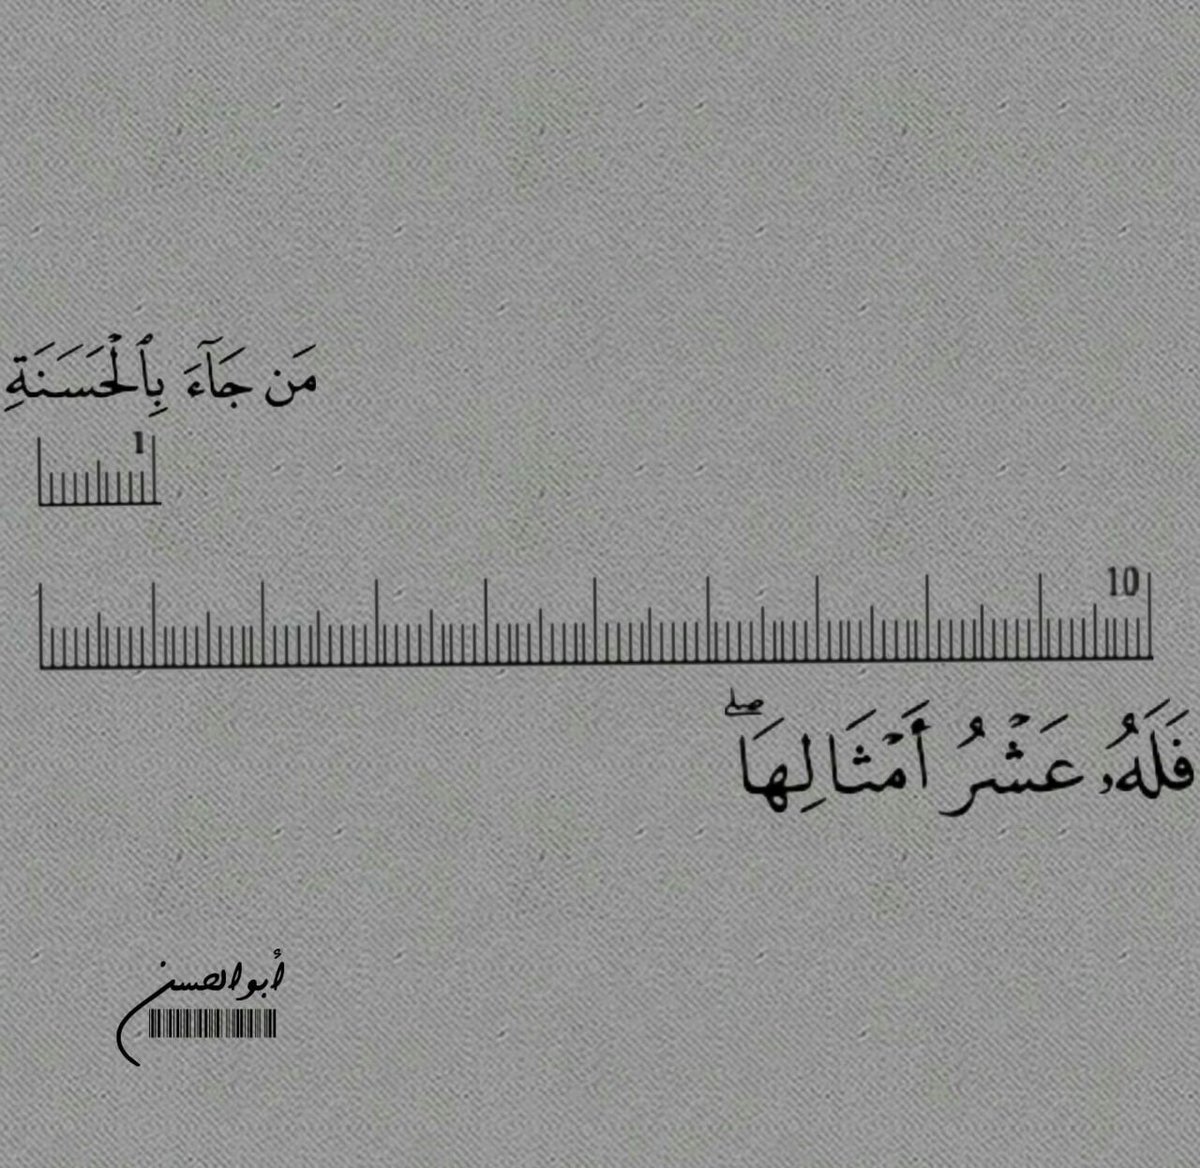 مَن جَآءَ بِٱلْحَسَنَةِ
1
10
فَلَهُۥ عَشْرُ أَمْثَالِهَا ۖ
أبو الحسن